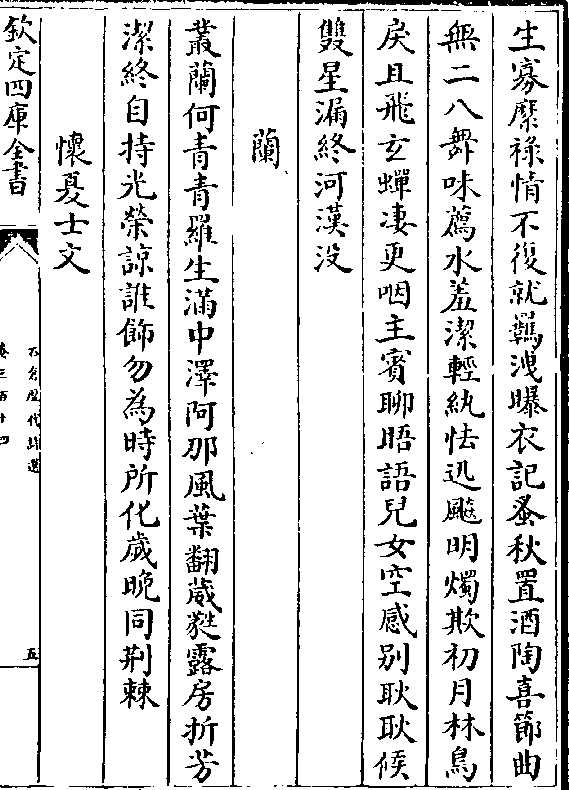 生寡縻祿情不復就羈洩曝衣記蚤秋置酒陶喜節曲
無二八舞味薦水羞潔輕紈怯迅飈明燭欺初月林鳥
戾且飛玄蟬凄更咽主賓聊晤語兒女空感别耿耿候
雙星漏終河漢没
蘭
叢蘭何青青羅生滿中澤阿那風葉翻葳蕤露房折芳
潔終自持光榮諒誰飾勿為時所化歲晚同荆棘
懷夏士文
欽定四庫全書
石倉歷代詩選
卷三百十四
五